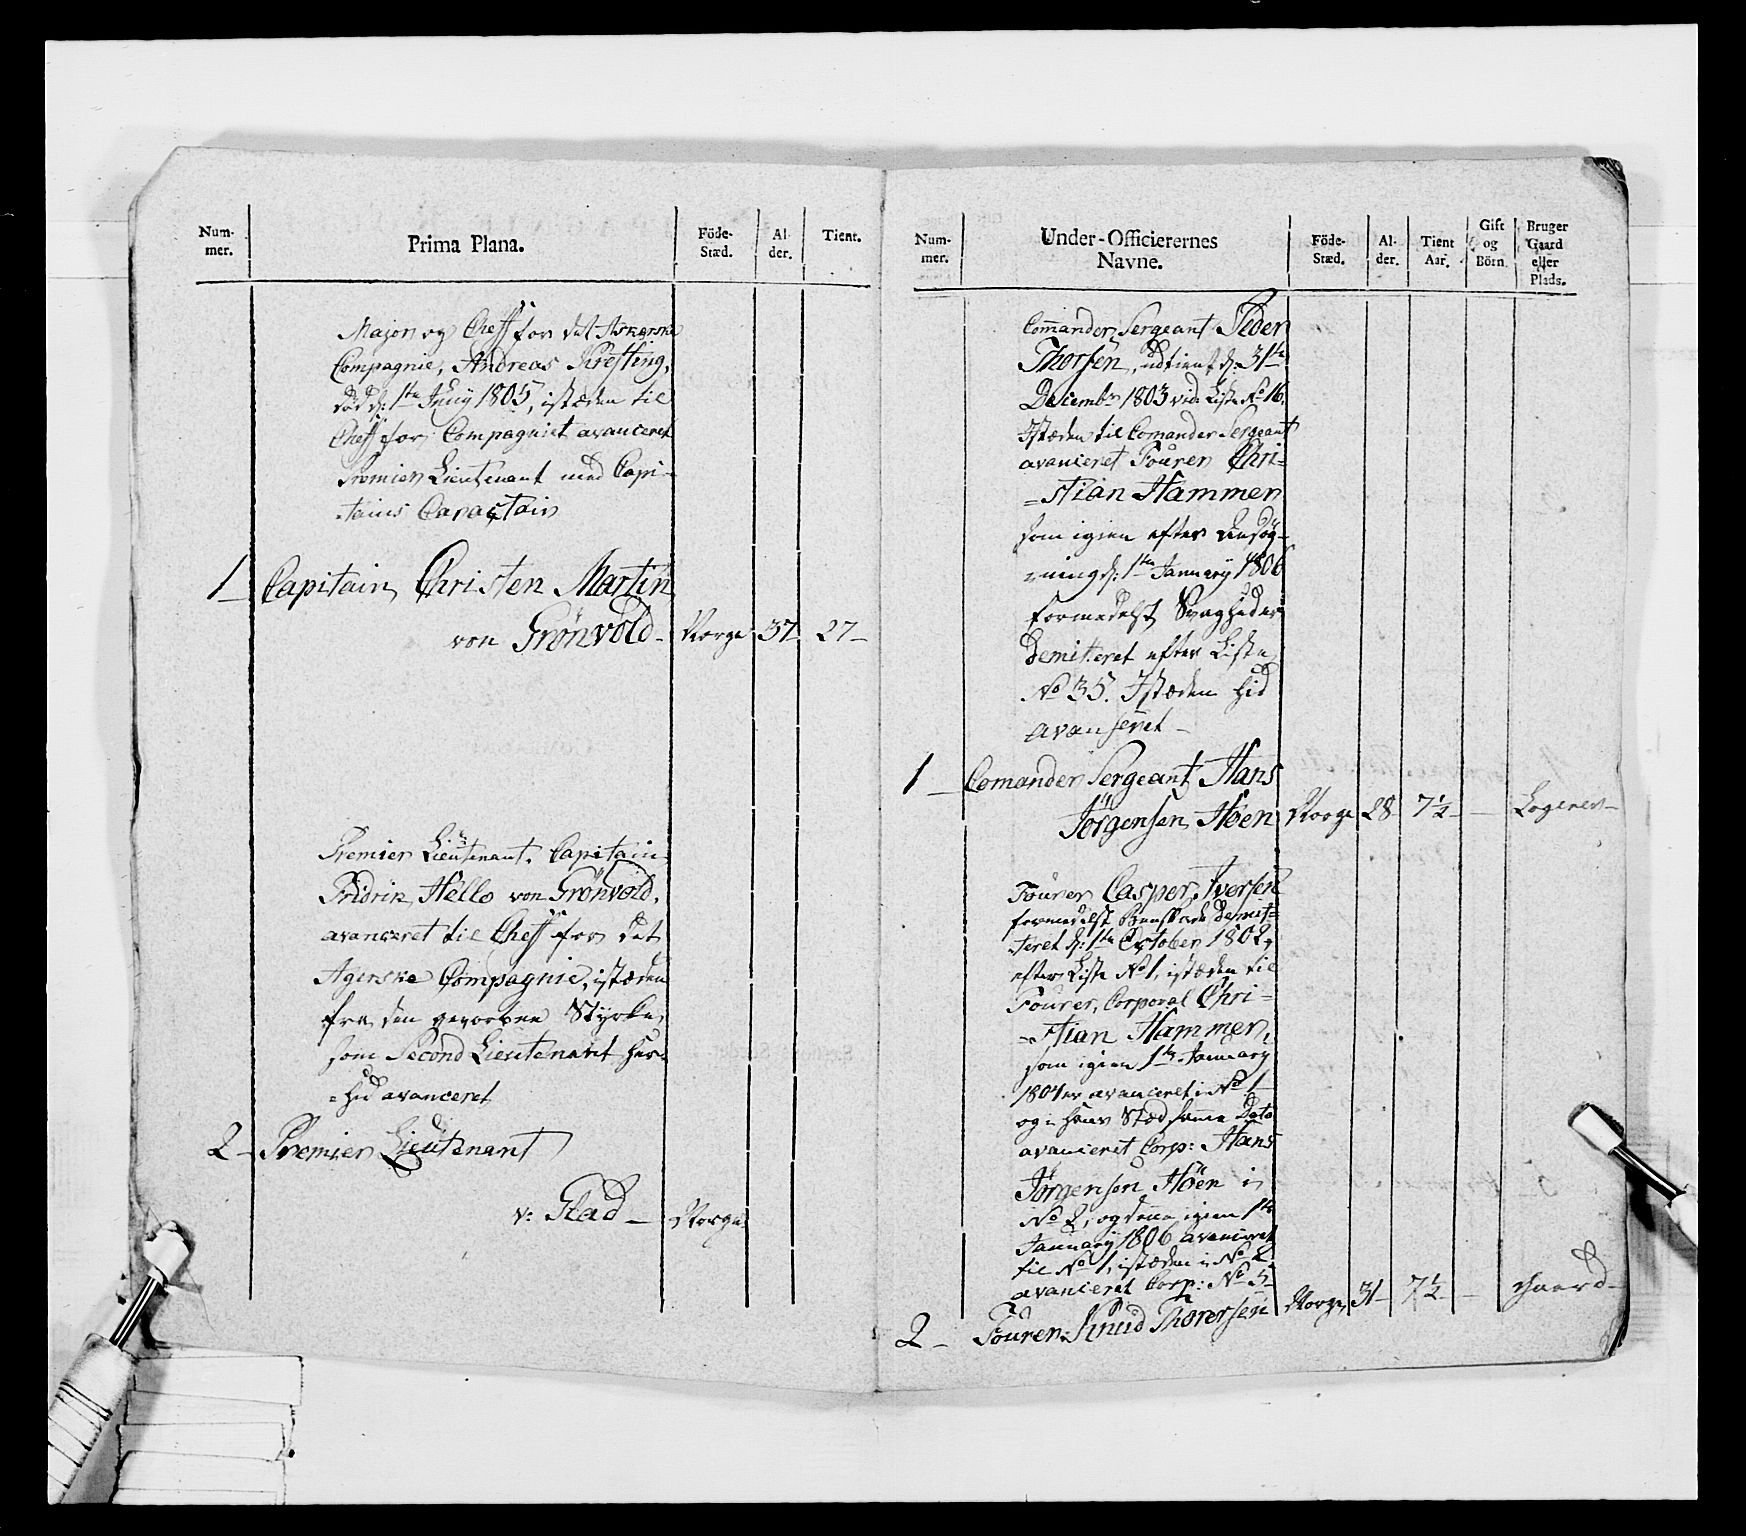 Num-
mer.
Prima Plana.
Föde-
Stæd.
Al-
der.
Tient.
Major og Cheff for det Askerske
Compagnie, Andreas Krefting,
død d: 1te Juny 1805, istæden til
Cheff for Compagniet avanceret
Premier Lieutenant med Capi-
tains Caracktair
1 Capitain Christen Martin
von Grönvold - Norge 37 27 -
Premier Lieutenant, Capitain
Fridrik Hello von Grönvold,
avanceret til Cheff for det
Agerske Compagnie, istæden
fra den gevorbne Styrke
som Second Lieutenant her-
=hid avanceret
2 - Premier Lieutenant
v: Stad - Norge
Num-
mer.
Under-Officierernes
Navne.
Föde-
Stæd.
Al-
der.
Tient
Aar.
Gift
og
Börn.
Bruger
Gaard
eller
Plads.
Commander Sergeant Peder
Thorsen, udtient d: 31te
Decembr 1803 vide Liste No 16.
Istæden til Comander Sergeant
avanceret Fourer Chri=
=stian Hammer
som igien efter Ansøg-
ning d: 1te January 1806
formedelst Svagheder
Demitteret efter Liste
No 35. Istæden hid
avanseret -
1 - Comander Sergeant Hans
Jörgensen Höen Norge 28 7½ - Logerer -
Fourer Casper Iversen
formedelst Demit=
teret d: 1te October 1802,
efter Liste No 1, istæden til
Fourer, Corporal Chri=
=stian Hammer,
som igien 1te January
1804 er avanceret i No 1
og i hans Stæd samme Dato
avanceret Corp: Hans
Jörgensen Höen i
No 2, og denne igien 1te
January 1806 avanceret
til No 1, istæden i No 2
avanceret Corp: No 3
2 - Fourer Knud Thorersen Norge 31 - 7½ - Gaard -